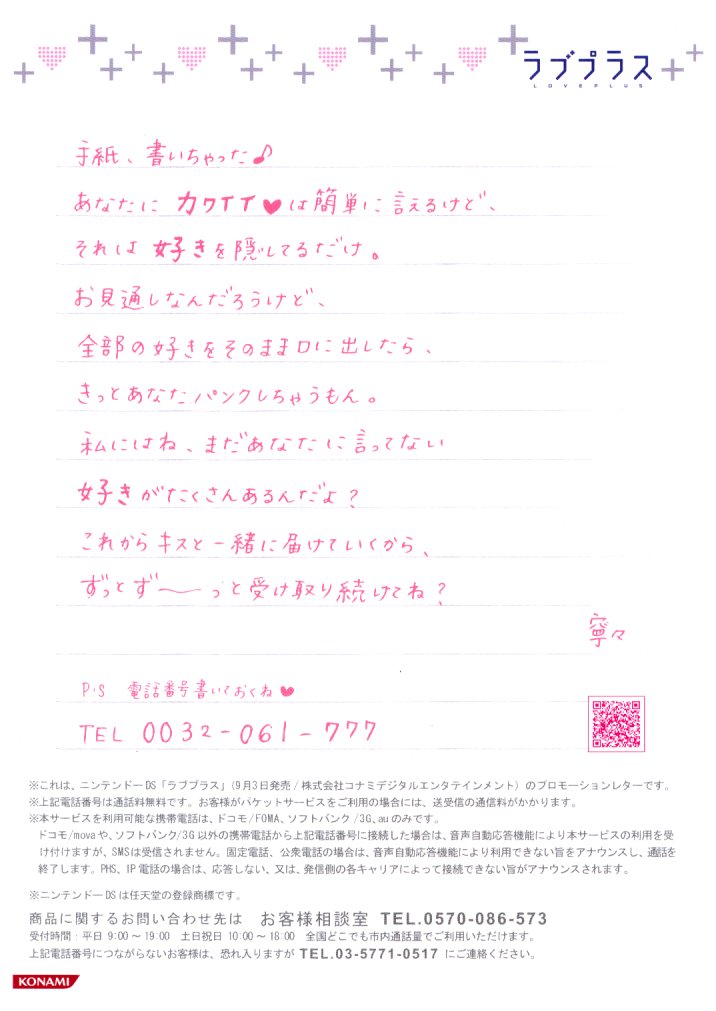 ラブプラス
LOVEPLUS
手紙、書いちゃった♪
あなたに カワイイ♥は簡単に言えるけど、
それは 好きを隠してるだけ。
お見通しなんだろうけど、
全部の好きをそのまま口に出したら、
きっとあなたパンクしちゃうもん。
私にはね、まだあなたに言ってない
好きがたくさんあるんだよ?
これからキスと一緒に届けていくから、
ずっとず〜っと受け取り続けてね?
寧々
P.S 電話番号書いておくね♥
TEL 0032-061-777
※これは、ニンテンドーDS「ラブプラス」(9月3日発売/株式会社コナミデジタルエンタテインメント)のプロモーションレターです。
※上記電話番号は通話料無料です。お客様がパケットサービスをご利用の場合には、送受信の通信料がかかります。
※本サービスを利用可能な携帯電話は、ドコモ/FOMA、ソフトバンク/3G、auのみです。
ドコモ/movaや、ソフトバンク/3G以外の携帯電話から上記電話番号に接続した場合は、音声自動応答機能により本サービスの利用を受
け付けますが、SMSは受信されません。固定電話、公衆電話の場合は、音声自動応答機能により利用できない旨をアナウンスし、通話を
終了します。PHS、IP電話の場合は、応答しない、又は、発信側の各キャリアによって接続できない旨がアナウンスされます。
※ニンテンドーDSは任天堂の登録商標です。
商品に関するお問い合わせ先は お客様相談室 TEL.0570-086-573
受付時間:平日 9:00〜19:00 土日祝日 10:00〜18:00 全国どこでも市内通話量でご利用いただけます。
上記電話番号につながらないお客様は、恐れ入りますが TEL.03-5771-0517 にご連絡ください。
KONAMI